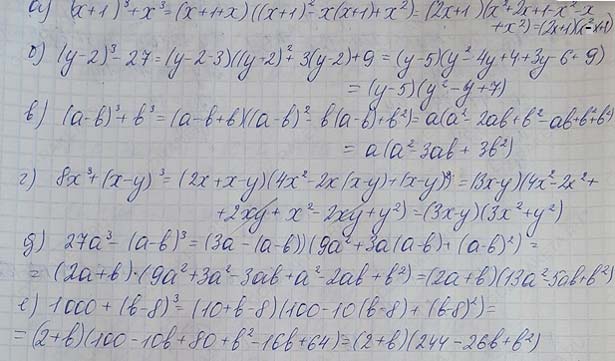 а) (x+1)³+x³=(x+1+x)((x+1)²-x(x+1)+x²)=(2x+1)(x²+2x+1-x²-x
+x²)=(2x+1)(x²+x+1)
б) (y-2)³-27=(y-2-3)((y-2)²+3(y-2)+9=(y-5)(y²-4y+4+3y-6+9)
=(y-5)(y²-y+7)
в) (a-b)³+b³=(a-b+b)((a-b)²-b(a-b)+b²)=a(a²-2ab+b²-ab+b²+b²)
=a(a²-3ab+3b²)
г) 8x³+(x-y)³=(2x+x-y)(4x²-2x(x-y)+(x-y)²)=(3x-y)(4x²-2x²+
+2xy+x²-2xy+y²)=(3x-y)(3x²+y²)
д) 27a³-(a-b)³=(3a-(a-b))(9a²+3a(a-b)+(a-b)²)=
=(2a+b)·(9a²+3a²-3ab+a²-2ab+b²)=(2a+b)(13a²-5ab+b²)
е) 1000+(b-8)³=(10+b-8)(100-10(b-8)+(b-8)²)=
=(2+b)(100-10b+80+b²-16b+64)=(2+b)(244-26b+b²)